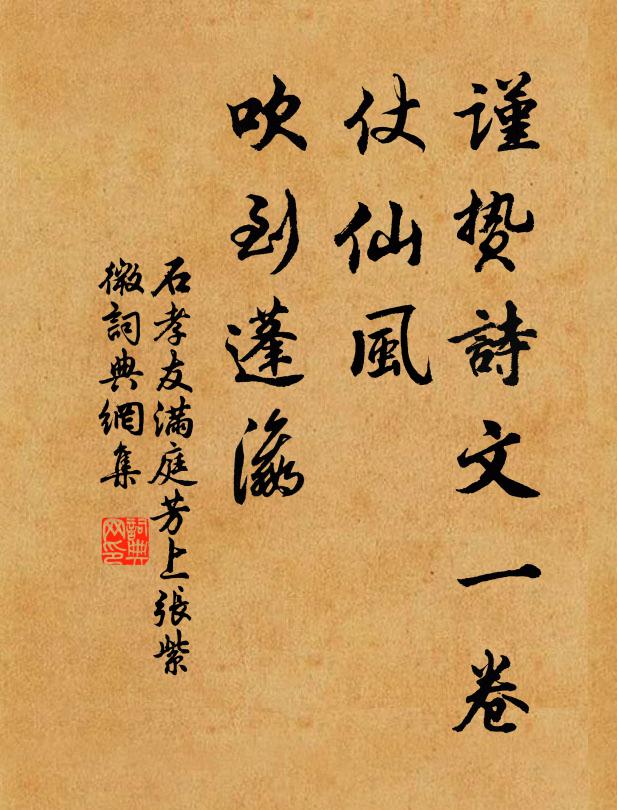 謹贽詩文一卷
仗仙風
吹到蓬瀛
石孝友满庭芳上張紫
微詞典網集
詞典网印